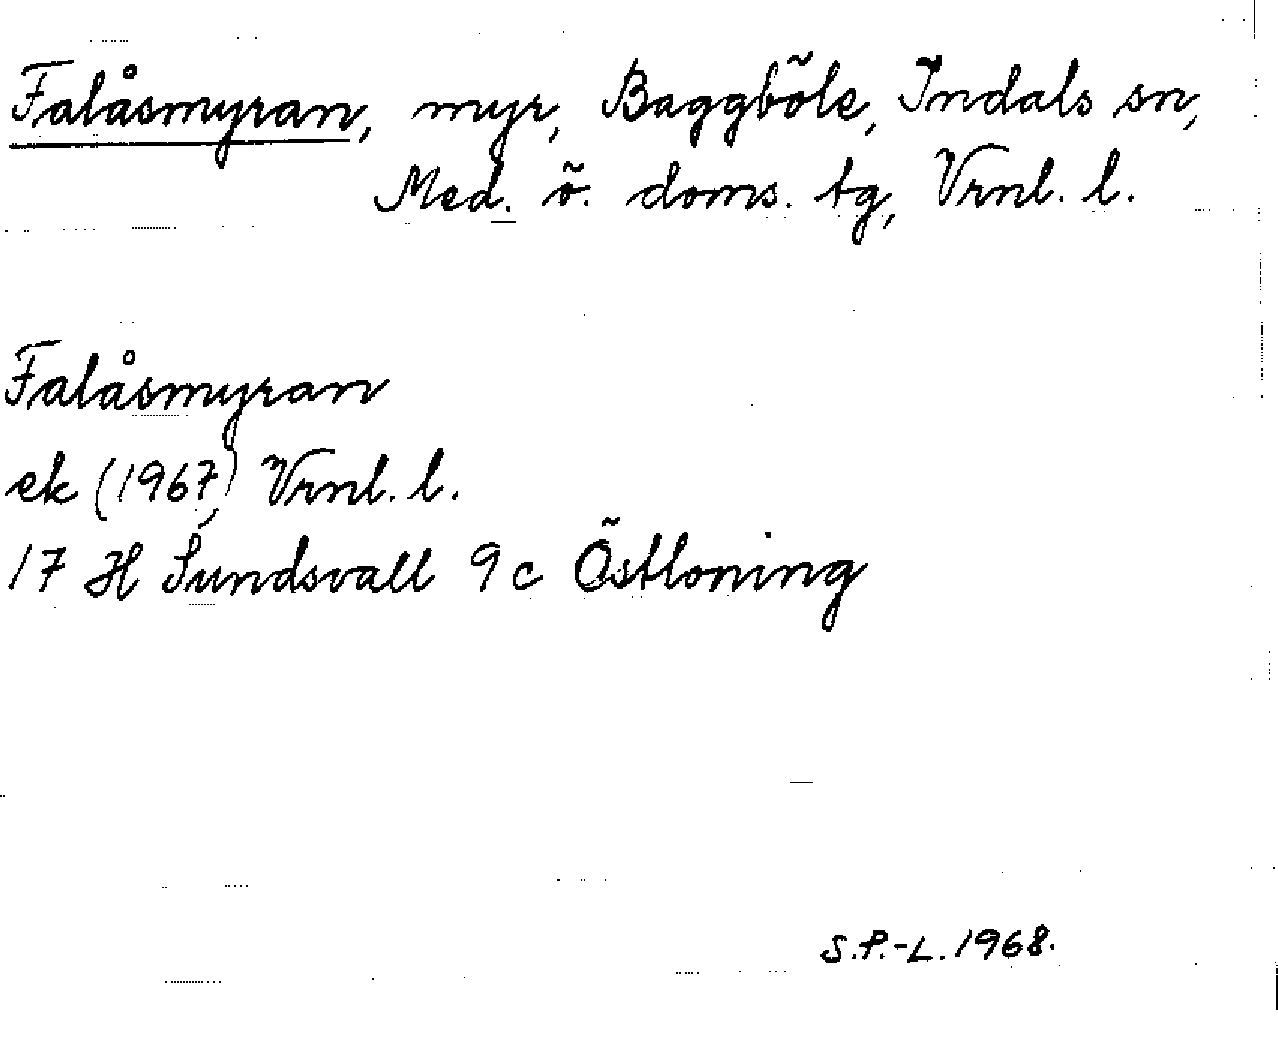 Falåsmyran, myr, Baggböle, Indals sn,
Med. ö. doms. tg, Vrnl. l.
Falåsmyran
ek (1967) Vrnl. l.
17 H Sundsvall 9 c Östloning
S.P.-L. 1968.